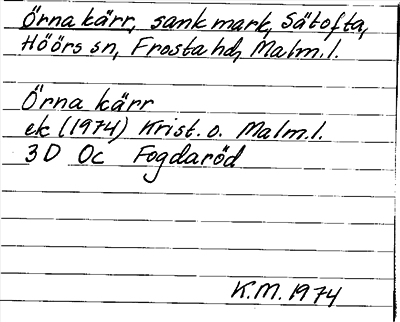 Örna kärr, sank mark, Sätofta,
Höörs sn, Frosta hd, Malm.l.
Örna kärr
ek (1974) Krist. o. Malm.l.
3D Oc Fogdaröd
K.M. 1974